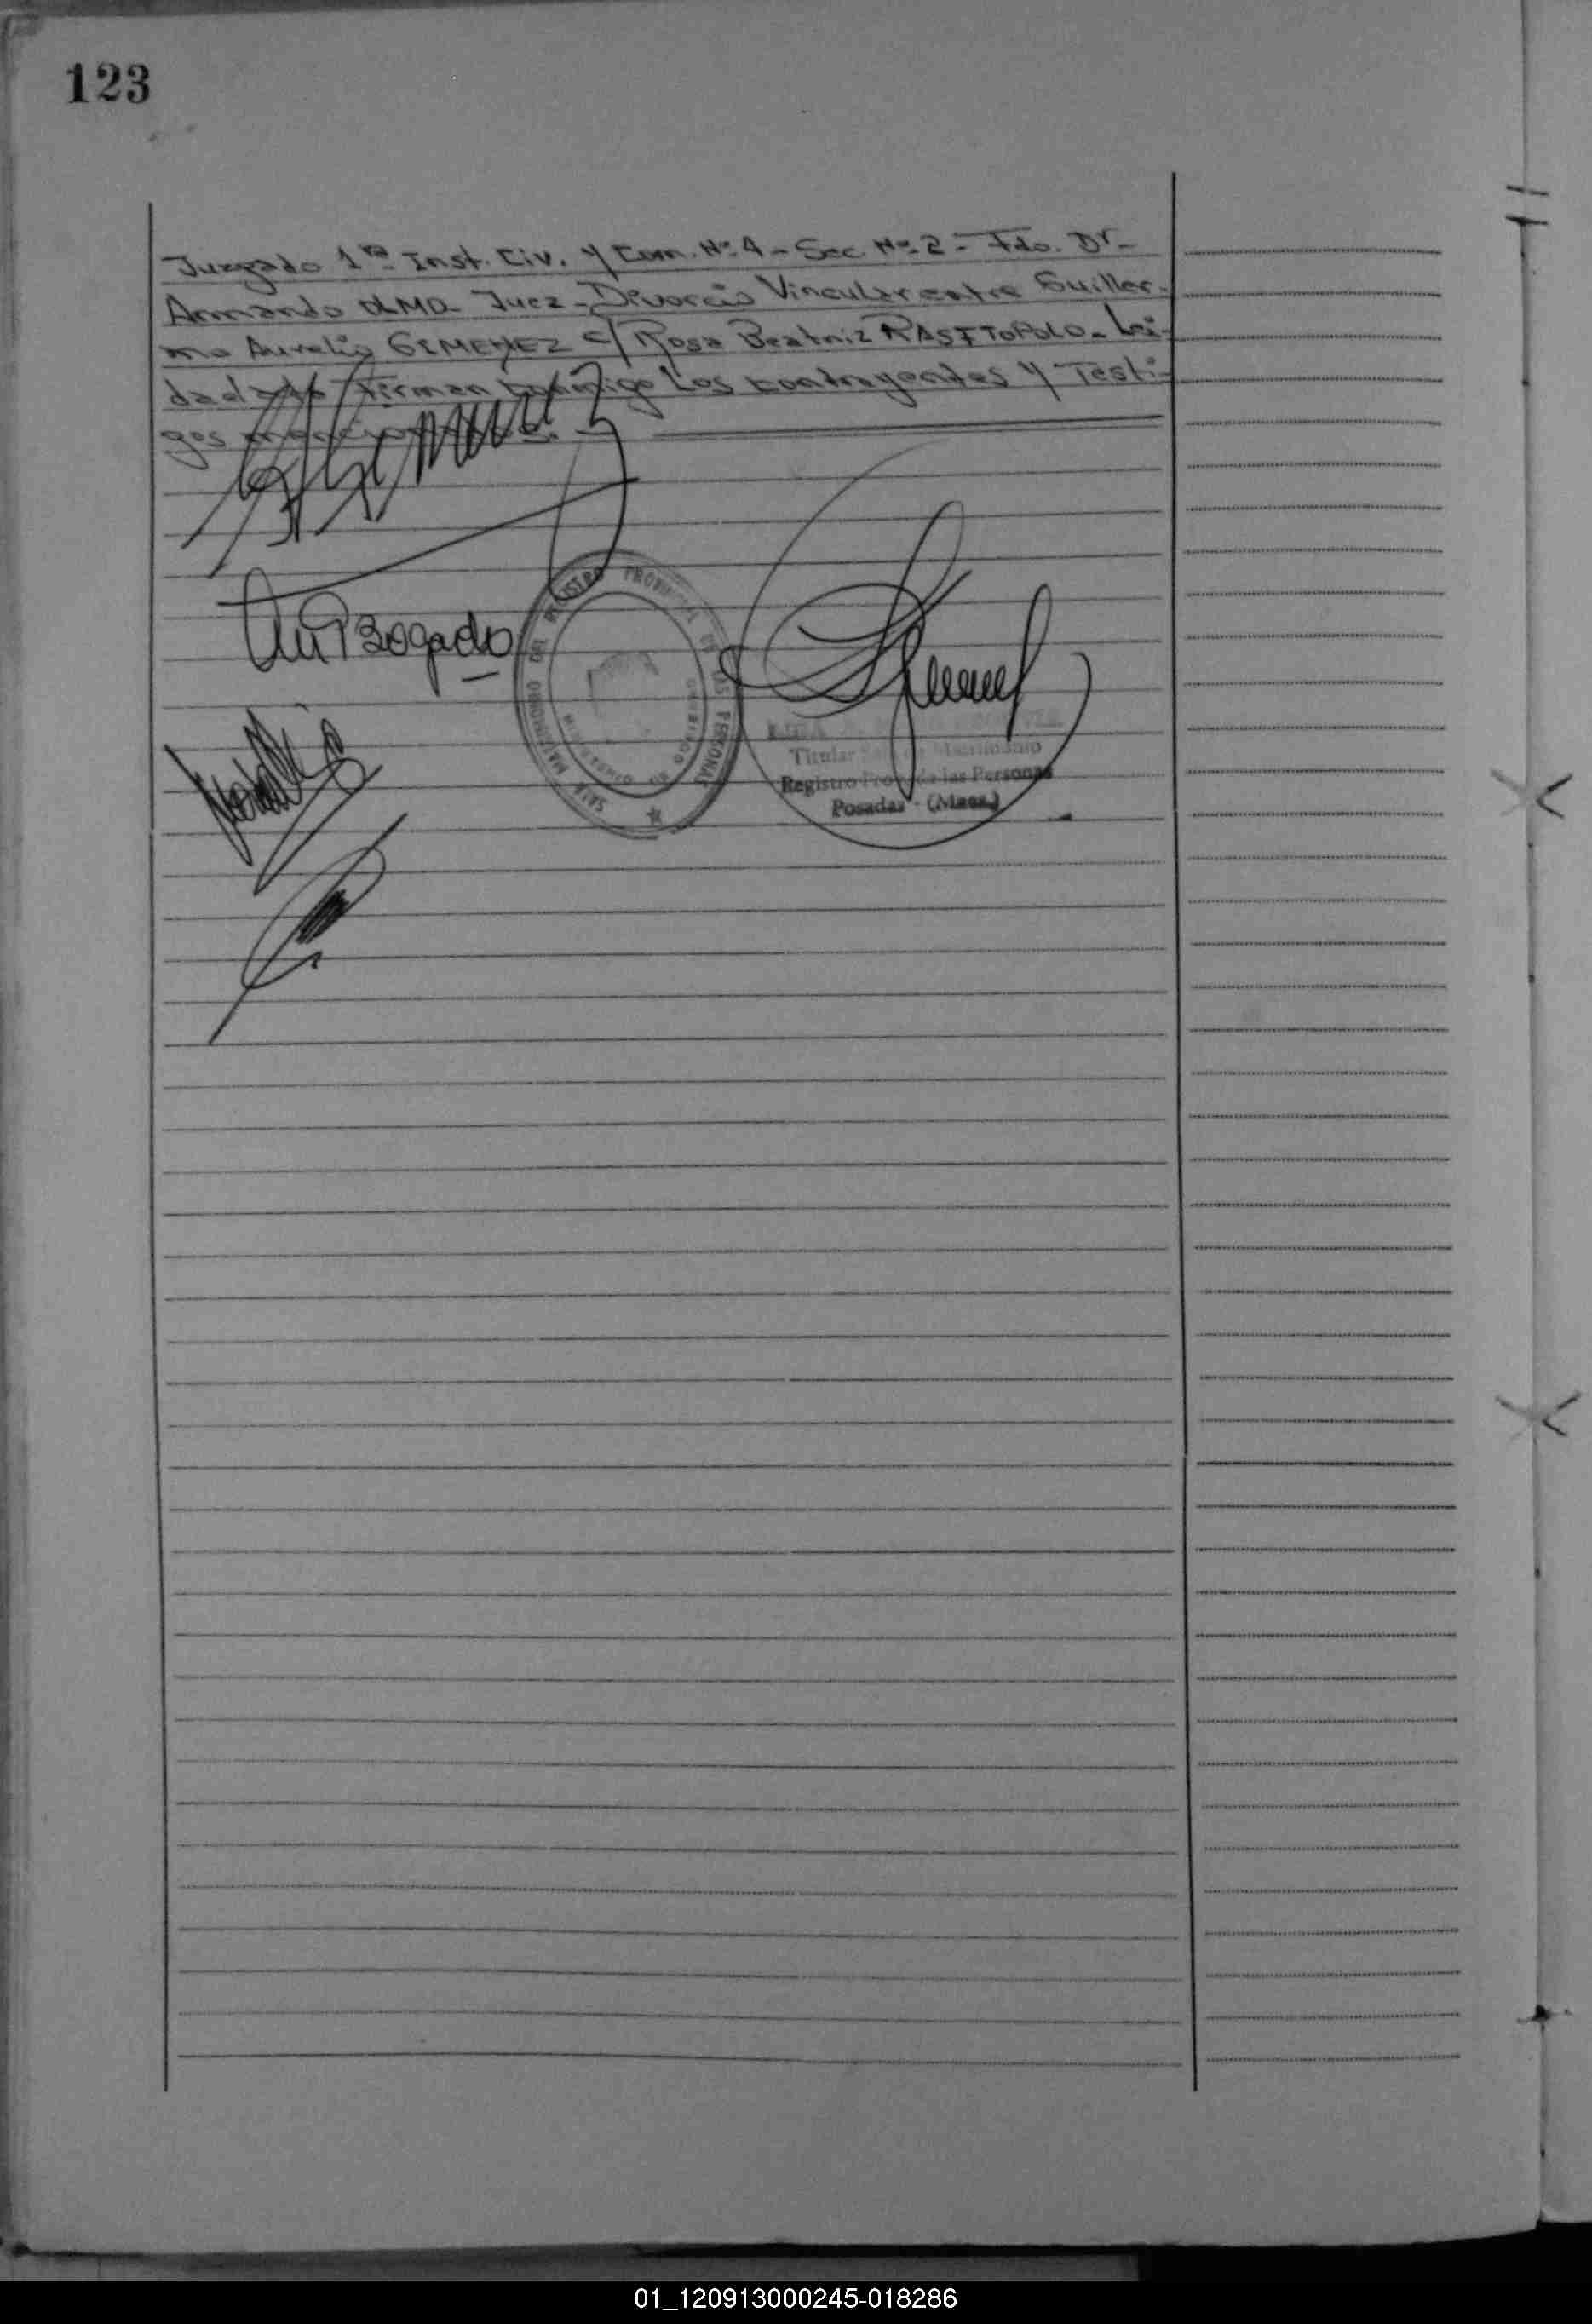 123
Juzgado 1ra Inst. Civ. y Com. Nº 4 - Sec. Nº 2 - Fdo. Dr -
Armando ALMA Juez - Divorcio Vincular entre Guiller-
mo Aurelio GIMENEZ c/ Rosa Beatriz RASFTOPOLO - Lei-
da el acta Firman conmigo Los contrayentes y Testi-
gos
Bogado
SALA MATRIMONIO DEL REGISTRO PROVINCIAL DE LAS PERSONAS
Titular Sala de Matrimonio
Registro Prov. de las Personas
Posadas - (Mnes.)
01_120913000245-018286